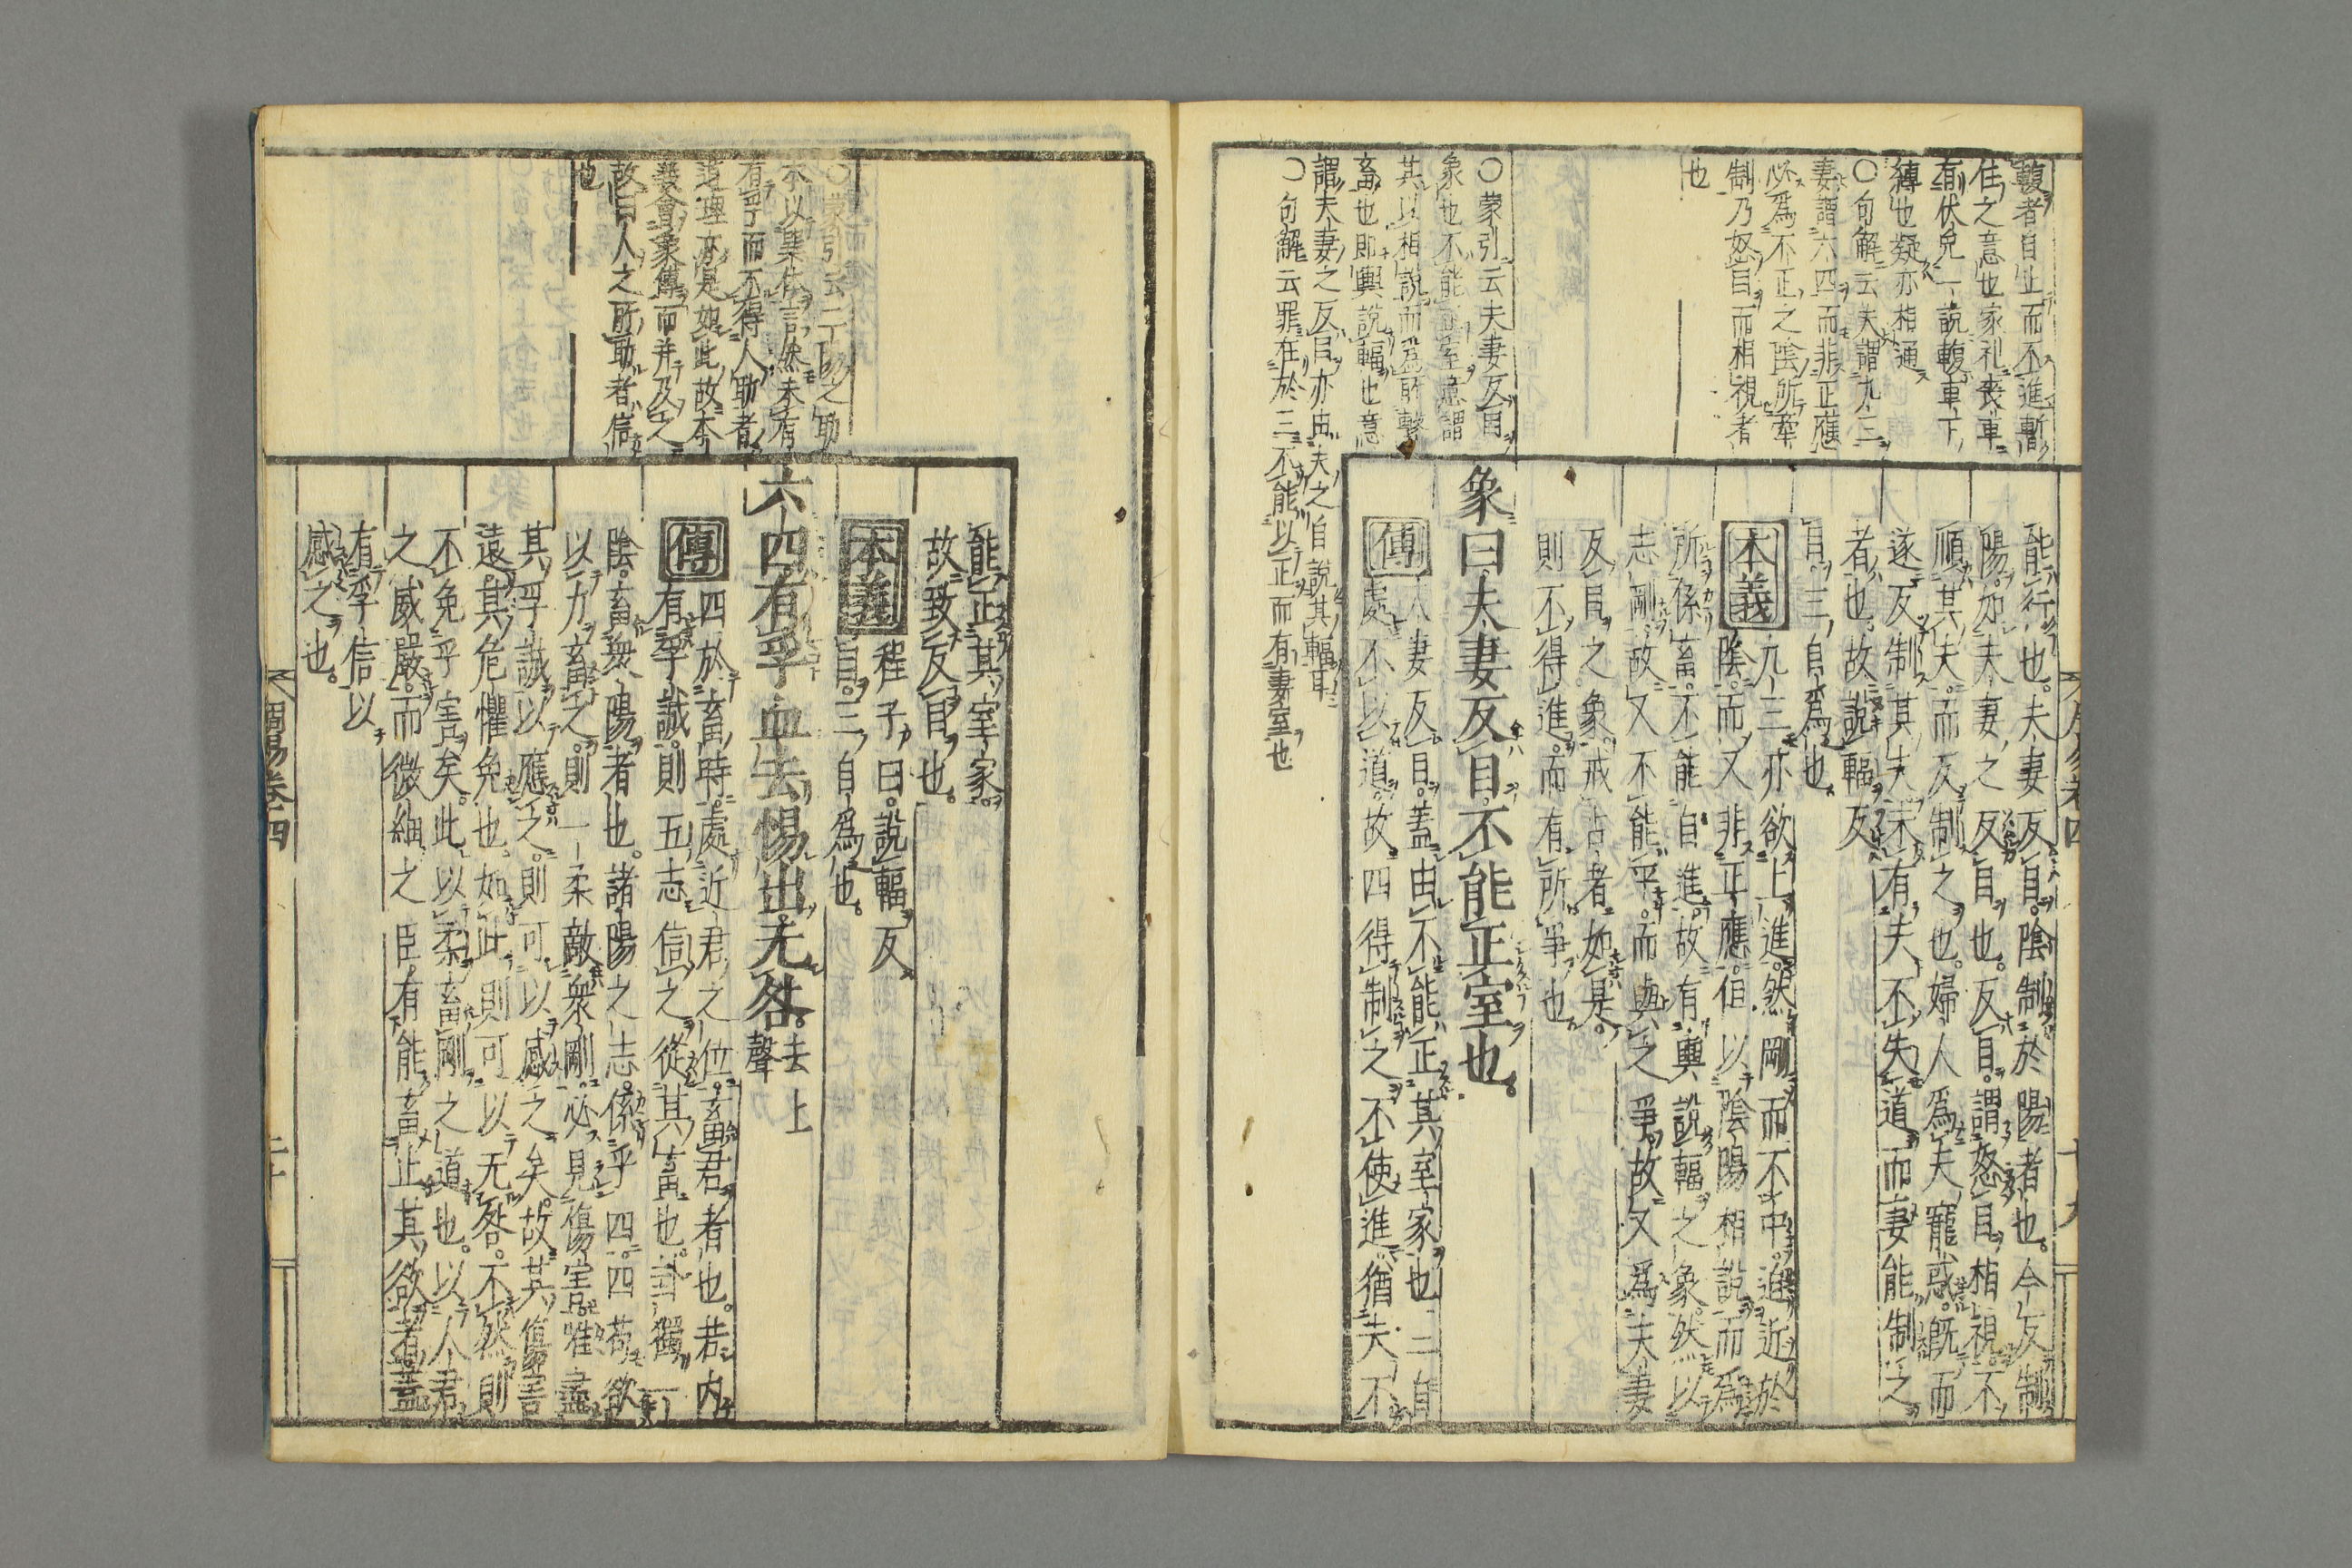 輹者自止而不進暫
住之意也家礼喪車
有伏兔一説輹車下
縛也疑亦相通
○句解云夫謂九三
妻謂六四而非正應
必為不正之陰所牽
制乃怒目而相視者
也
○蒙引云夫妻反目
象也不能正室意謂
其以相説而為所繫
畜也即輿説輻也意
謂夫妻之反目亦由夫之自説其輻耳
○句解云罪在於三不能以正而有妻室也
能行也。夫妻反目。陰制於陽者也。今反制
陽。如夫妻之反目也。反目。謂怒目相視。不
順其夫。而反制之也。婦人為夫寵惑。既而
遂反制其夫。未有夫不失道。而妻能制之
者也。故説輻反
目。三自為也。
本義 九三亦欲上進。然剛而不中。迫近於
陰。而又非正應。但以陰陽相説而為
所係畜。不能自進。故有輿説輻之象。然以
志剛。故又不能平。而與之爭。故又為夫妻
反目之象。戒占者如是。
則不得進。而有所爭也
象曰夫妻反目。不能正室也。
傳 夫妻反目。蓋由不能正其室家也。三自
處不以道。故四得制之不使進。猶夫不
能正其室家。
故致反目也。
本義 程子曰。説輻反
目。三自為也。
六四有孚。血去惕出。无咎。去上聲
傳 四於畜時。處近君之位。畜君者也。若内
有孚誠。則五志信之。從其畜也。卦獨一
陰。畜衆陽者也。諸陽之志。係乎四。四苟欲
以力畜之。則一柔敵衆剛。必見傷害。唯盡
其孚誠以應之。則可以感之矣。故其傷害
遠。其危懼免也。如此則可以无咎。不然則
不免乎害矣。此以柔畜剛之道也。以人君
之威嚴。而微細之臣。有能畜止其欲者。蓋
有孚信以
感之也。
○蒙引云二陽之助
本以巽体言然未有
有孚而不得人助者
道理亦是如此故本
義會象傳而并及之
故曰人之所助者信
也
周易卷四